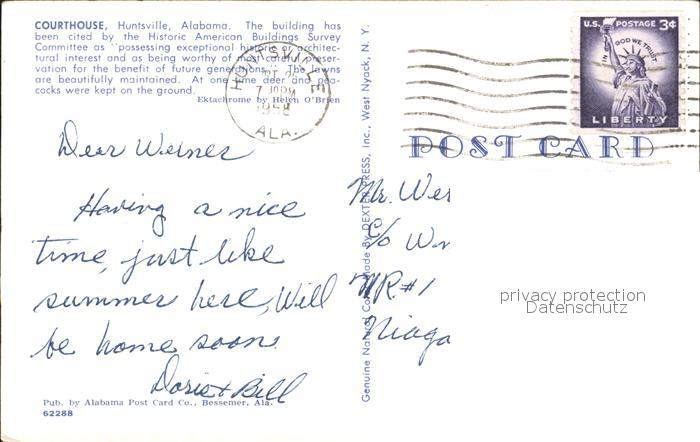 COURTHOUSE, Huntsville, Alabama. The building has
been cited by the Historic American Buildings Survey
Committee as "possessing exceptional historic or architec-
tural interest and as being worthy of most careful preser-
vation for the benefit of future generations." The lawns
are beautifully maintained. At one time deer and pea-
cocks were kept on the ground.
Ektachrome by Helen O'Brien
HUNTSVILLE
7 30PM
1958
ALA.
U.S. POSTAGE 3¢
IN GOD WE TRUST
LIBERTY
POST CARD
Dear Werner
Having a nice
time, just like
summer here, Will
be home soon.
Doris & Bill
Pub. by Alabama Post Card Co., Bessemer, Ala.
62288
Genuine Natural Color Made By DEXTER PRESS, Inc., West Nyack, N. Y.
Mr. Wer
c/o Wn
R.#1
Niaga
privacy protection
Datenschutz